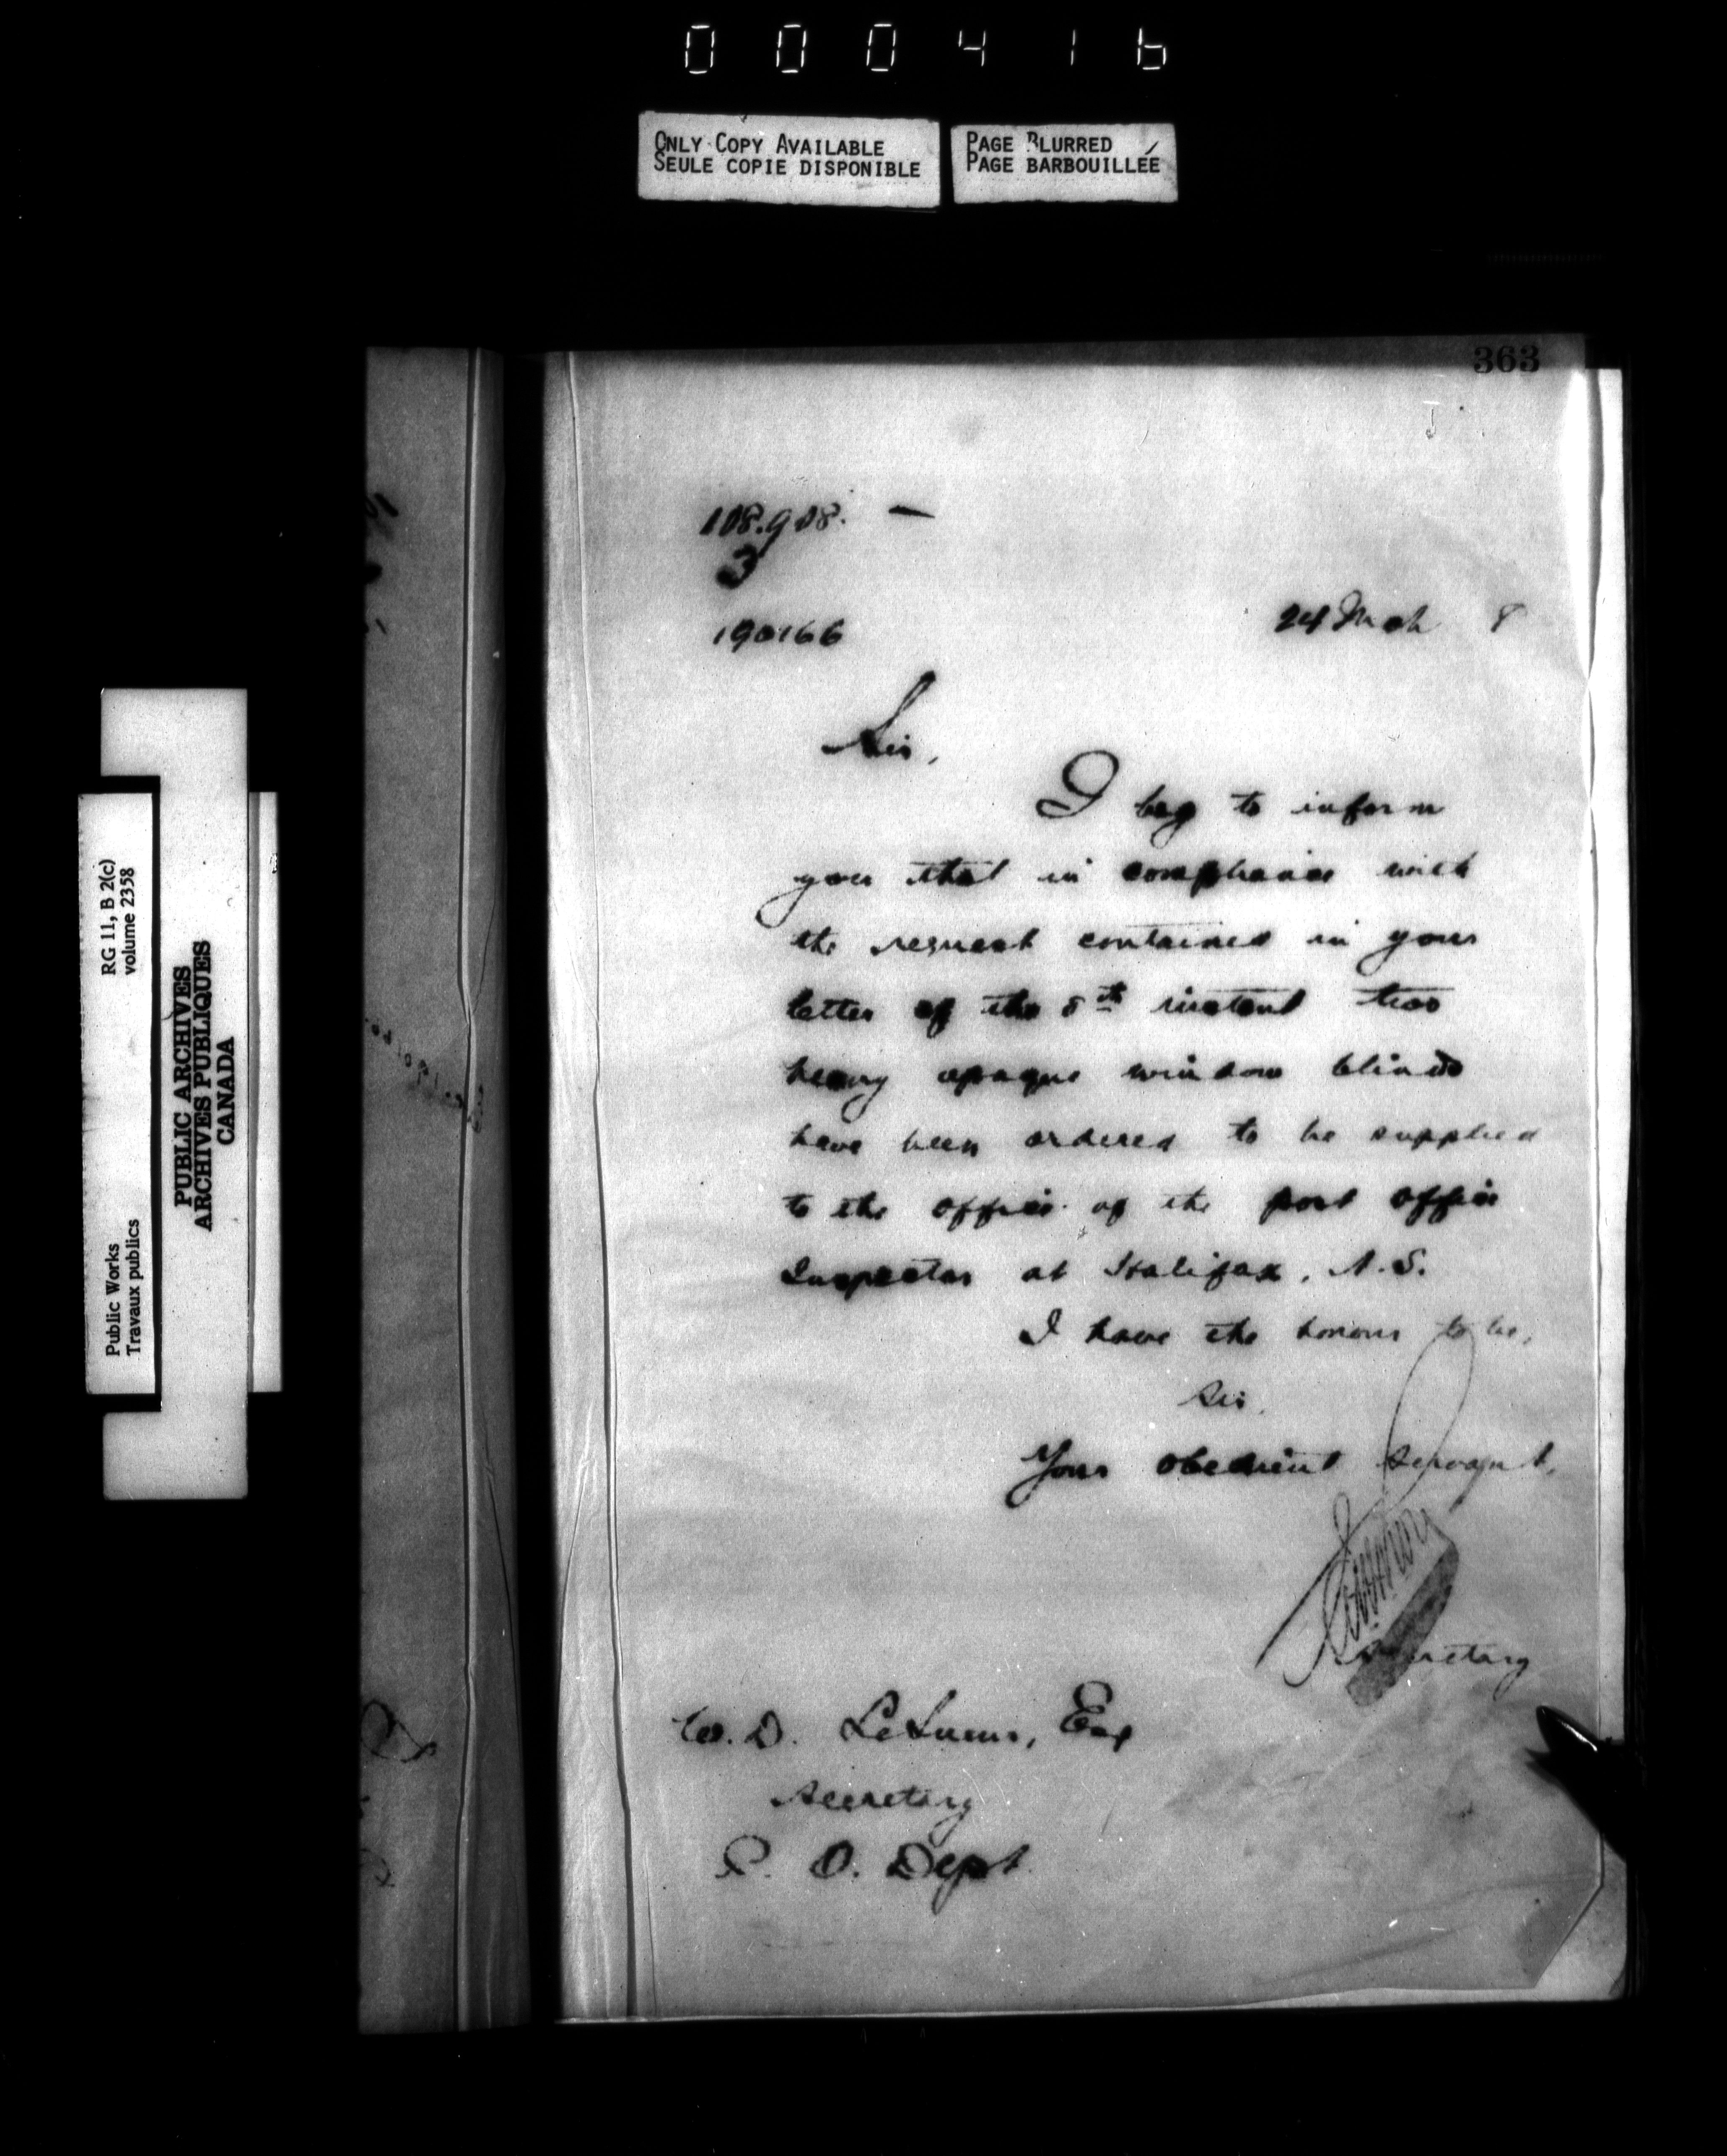 000416
ONLY COPY AVAILABLE
SEULE COPIE DISPONIBLE
PAGE BLURRED
PAGE BARBOUILLÉE
RG 11, B 2(c)
volume 2358
Public Works
Travaux publics
PUBLIC ARCHIVES
ARCHIVES PUBLIQUES
CANADA
363
108.908. —
3
190166
24 Mch 8
Sir,
I beg to inform
you that in compliance with
the request contained in your
letter of the 8th instant two
heavy opaque window blinds
have been ordered to be supplied
to the office of the Post Office
Inspector at Halifax, N.S.
I have the honour to be,
Sir,
Your obedient servant,
Secretary
W. D. LeSueur, Esq
Secretary
P. O. Dept